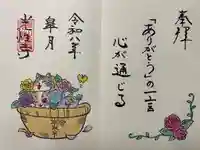 奉拝
「ありがとう」の一言
心が通じる
令和六年
皐月